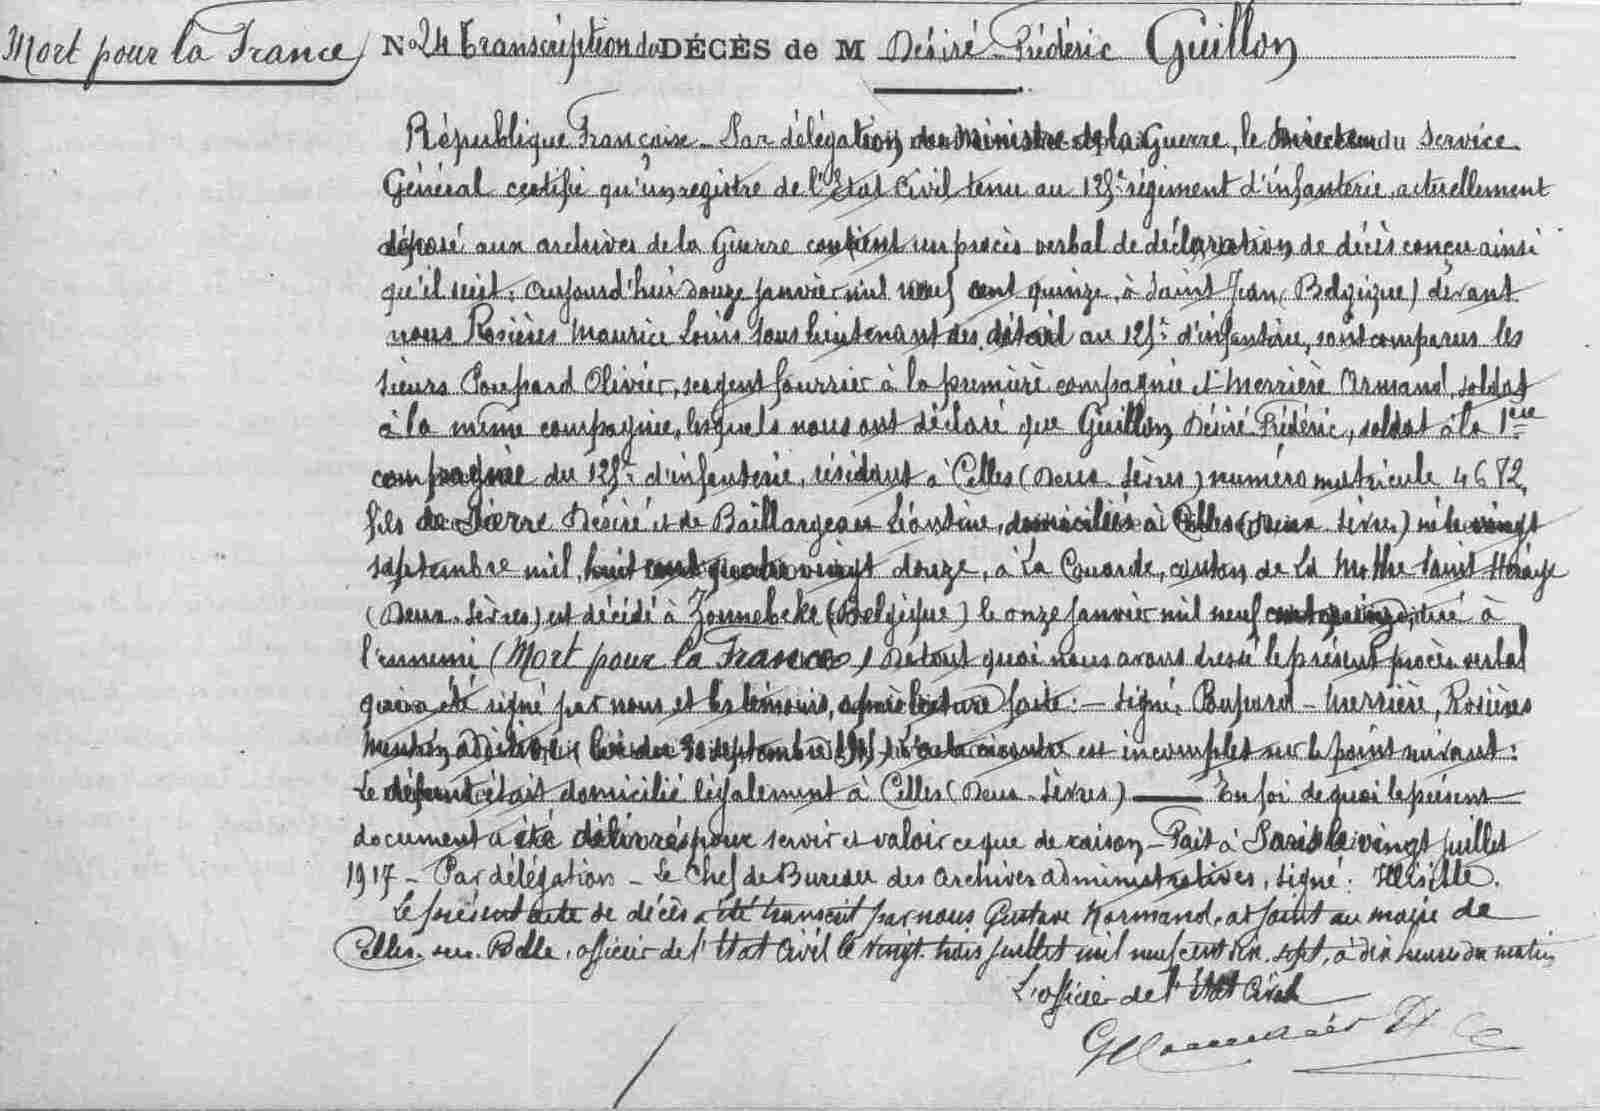 Mort pour la France
No 24 Transcription du DÉCÈS de M Désiré Frédéric Guillon
République Française - Par délégation du Ministre de la Guerre, le Directeur du Service
Général certifie qu'un registre de l'Etat Civil tenu au 125e régiment d'infanterie, actuellement
déposé aux archives de la Guerre contient un procès verbal de déclaration de décès conçu ainsi
qu'il suit : Aujourd'hui douze janvier mil neuf cent quinze, à Saint Jean (Belgique) devant
nous Rosières Maurice Louis sous lieutenant des détail au 125e d'infanterie, sont comparus les
sieurs Poupard Olivier, sergent fourrier à la première compagnie et Merrière Armand, soldat
à la même compagnie, lesquels nous ont déclaré que Guillon Désiré Frédéric, soldat à la 1ère
compagnie du 125e d'infanterie, résidant à Celles (Deux-Sèvres) numéro matricule 4682,
fils de Pierre Désiré et de Baillargeau Léontine, domiciliés à Celles (Deux Sèvres) né le vingt
septembre mil huit cent quatre vingt douze, à La Couarde, canton de La Mothe Saint Héraye
(Deux-Sèvres) est décédé à Zonnebeke (Belgique) le onze janvier mil neuf cent quinze, tué à
l'ennemi (Mort pour la France) De tout quoi nous avons dressé le présent procès verbal
qui a été signé par nous et les témoins, après lecture faite : - Signé, Poupard - Merrière, Rosières
Mention additive, (loi du 30 septembre 1915) L'acte ci contre est incomplet sur le point suivant :
Le défunt était domicilié légalement à Celles (Deux-Sèvres) — En foi de quoi le présent
document a été délivré pour servir et valoir ce que de raison - Fait à Paris le vingt juillet
1917 - Par délégation - Le Chef de Bureau des Archives administratives, signé :
Le présent acte de décès a été transcrit par nous Gustave Normand, adjoint au maire de
Celles-sur-Belle, officier de l'Etat Civil le vingt trois juillet mil neuf cent dix sept, à dix heures du matin
L'officier de l'Etat Civil